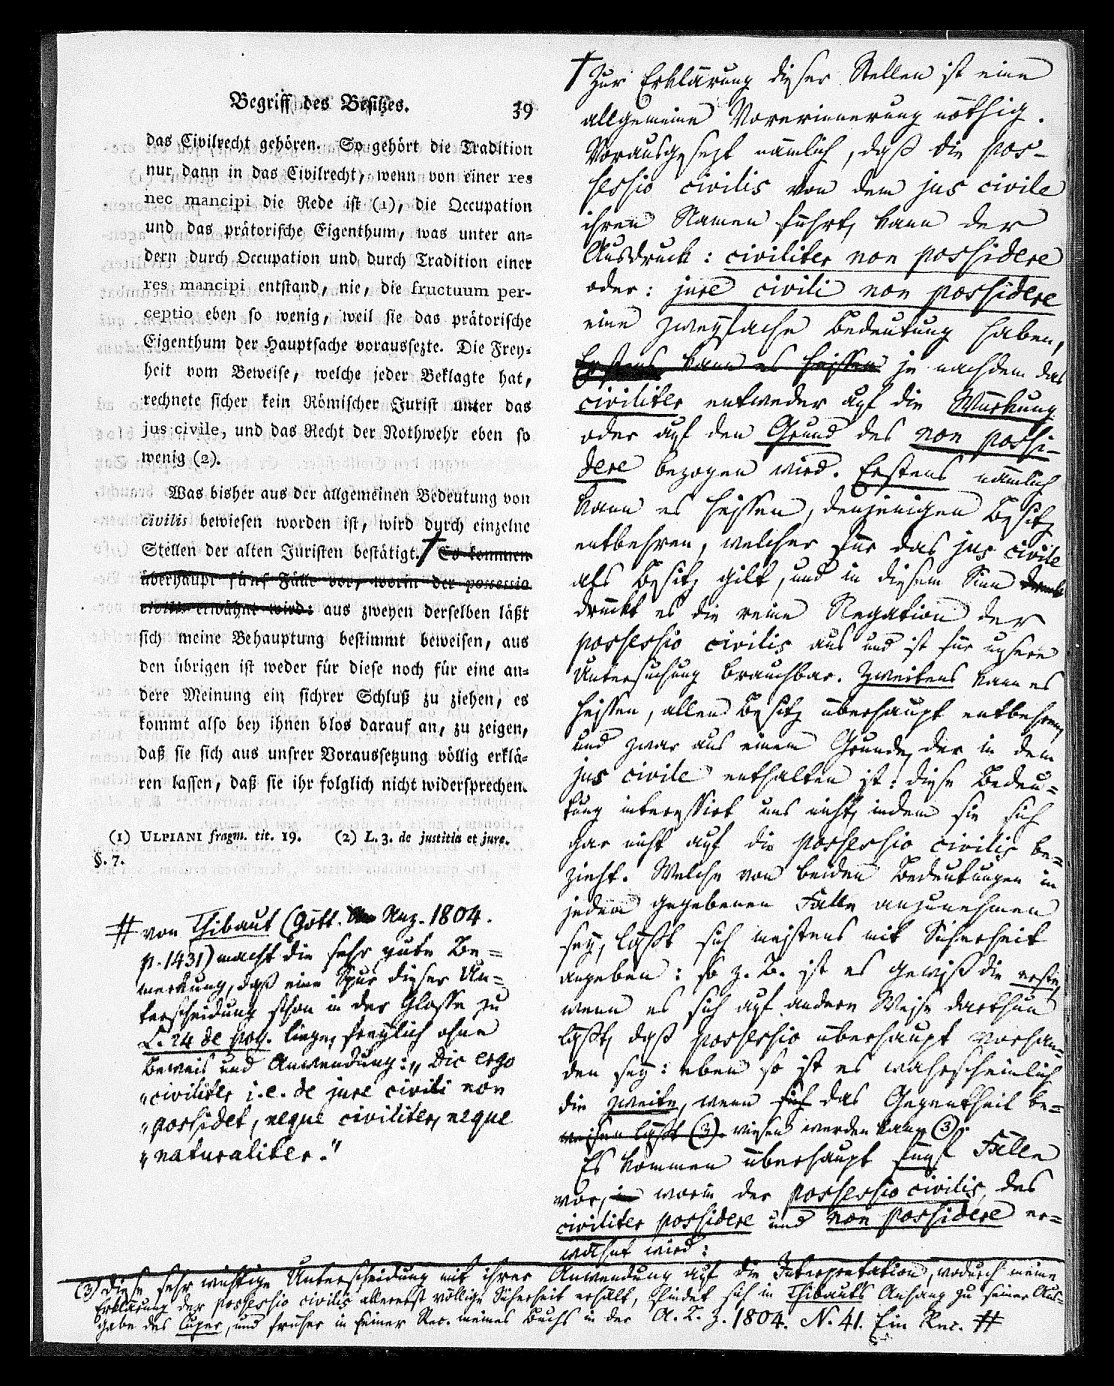 Begriff des Besitzes. 39
das Civilrecht gehören. So gehört die Tradition
nur dann in das Civilrecht, wenn von einer res
nec mancipi die Rede ist (1), die Occupation
und das prätorische Eigenthum, was unter an=
dern durch Occupation und durch Tradition einer
res mancipi entstand, nie, die fructuum per-
ceptio eben so wenig, weil sie das prätorische
Eigenthum der Hauptsache voraussezte. Die Frey=
heit vom Beweise, welche jeder Beklagte hat,
rechnete sicher kein Römischer Jurist unter das
jus civile, und das Recht der Nothwehr eben so
wenig (2).
Was bisher aus der allgemeinen Bedeutung von
civilis bewiesen worden ist, wird durch einzelne
Stellen der alten Juristen bestätigt. † Es kommen
überhaupt fünf Fälle vor, worin der possessio
civilis erwähnt wird: aus zweyen derselben läßt
sich meine Behauptung bestimmt beweisen, aus
den übrigen ist weder für diese noch für eine an=
dere Meinung ein sichrer Schluß zu ziehen, es
kommt also bey ihnen blos darauf an, zu zeigen,
daß sie sich aus unsrer Voraussetzung völlig erklä=
ren lassen, daß sie ihr folglich nicht widersprechen.
(1) ULPIANI fragm. tit. 19. (2) L. 3. de justitia et jure.
§. 7.
# von Thibaut (Gött. Anz. 1804.
p. 1431) macht die sehr gute Be=
merkung, daß eine Spur dieser Un=
terscheidung schon in der Glosse zu
L. 24 de poss. liege, freylich ohne
Beweis und Anwendung: „Dic ergo
„civiliter i. e. de jure civili non
„possidet, neque civiliter, neque
„naturaliter."
† Zur Erklärung dieser Stellen ist eine
allgemeine Vorerinnerung nöthig.
Vorausgesezt nämlich, daß die pos-
sessio civilis von dem jus civile
ihren Namen führt, kann der
Ausdruck: civiliter non possidere
oder: jure civili non possidere
eine zweyfache Bedeutung haben,
Erstens kann es heissen je nachdem das
civiliter entweder auf die Würkung
oder auf den Grund des non possi-
dere bezogen wird. Erstens nämlich
kann es heissen, denjenigen Besitz
entbehren, welcher für das jus civile
als Besitz gilt, und in diesem Sinn
drückt es die reine Negation der
possessio civilis aus und ist für unsere
Untersuchung brauchbar. Zweitens kann es
heissen, allen Besitz überhaupt entbehren,
und zwar aus einem Grunde, der in dem
jus civile enthalten ist: diese Bedeu=
tung interessirt uns nicht, indem sie sich
gar nicht auf die possessio civilis be=
zieht. Welche von beiden Bedeutungen in
jedem gegebenen Falle anzunehmen
sey, läßt sich meistens mit Sicherheit
angeben: so z. B. ist es gewiß die erste,
wenn es sich auf andere Weise darthun
läßt, daß possessio überhaupt vorhan=
den sey: eben so ist es wahrscheinlich
die zweite, wenn sich das Gegentheil be=
weisen läßt (3). wiesen werden kann (3).
Es kommen überhaupt fünf Fälle
vor, in worin der possessio civilis, des
civiliter possidere und non possidere er=
wähnt wird:
(3) Diese sehr wichtige Unterscheidung mit ihrer Anwendung auf die Interpretation, wodurch meine
Erklärung der possessio civilis allererst völlige Sicherheit erhält, findet sich in Thibauts Anhang zu seiner Aus=
gabe des Cuper, und früher in seiner Rec. meines Buchs in der A. L. Z. 1804. N. 41. Ein Rec. #